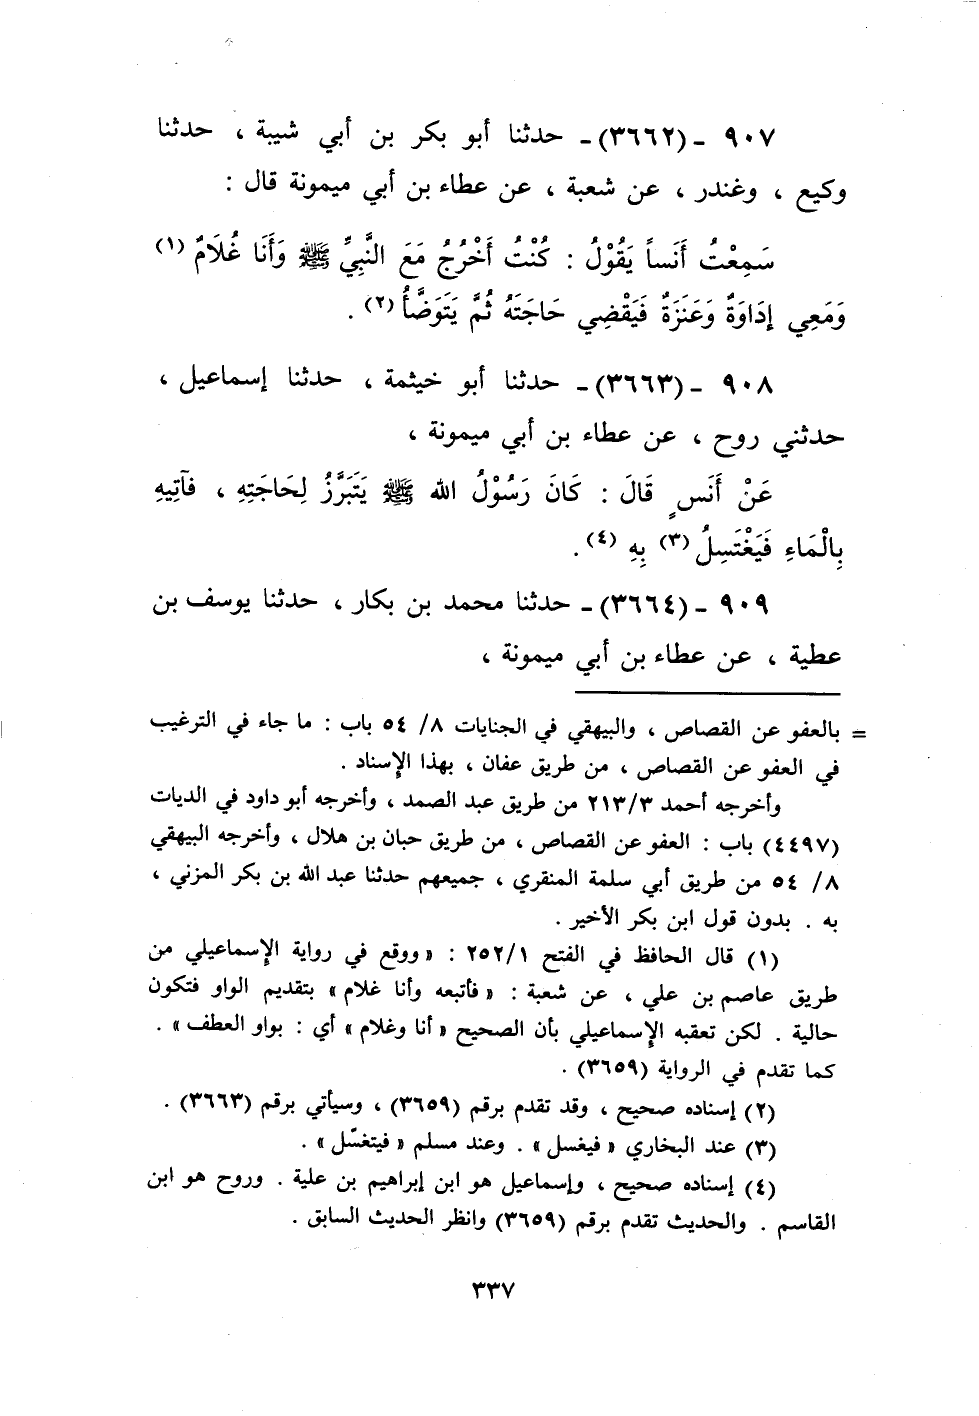 ٩٠٧ - (٣٦٦٢) - حدثنا أبو بكر بن أبي شيبة ، حدثنا
وكيع ، وغندر ، عن شعبة ، عن عطاء بن أبي ميمونة قال :
سَمِعْتُ أَنَساً يَقُوْلُ : كُنْتُ أَخْرُجُ مَعَ النَّبِيِّ ﷺ وَأَنَا غُلَامٌ (١)
وَمَعِي إِدَاوَةٌ وَعَنَزَةٌ فَيَقْضِي حَاجَتَهُ ثُمَّ يَتَوَضَّأُ (٢) .
٩٠٨ - (٣٦٦٣) - حدثنا أبو خيثمة ، حدثنا إسماعيل ،
حدثني روح ، عن عطاء بن أبي ميمونة ،
عَنْ أَنَسٍ قَالَ : كَانَ رَسُوْلُ الله ﷺ يَتَبَرَّزُ لِحَاجَتِهِ ، فَآتِيهِ
بِالْمَاءِ فَيَغْتَسِلُ (٣) بِهِ (٤) .
٩٠٩ - (٣٦٦٤) - حدثنا محمد بن بكار ، حدثنا يوسف بن
عطية ، عن عطاء بن أبي ميمونة ،
= بالعفو عن القصاص ، والبيهقي في الجنايات ٨/ ٥٤ باب : ما جاء في الترغيب
في العفو عن القصاص ، من طريق عفان ، بهذا الإسناد .
وأخرجه أحمد ٢١٣/٣ من طريق عبد الصمد ، وأخرجه أبو داود في الديات
(٤٤٩٧) باب : العفو عن القصاص ، من طريق حبان بن هلال ، وأخرجه البيهقي
٨/ ٥٤ من طريق أبي سلمة المنقري ، جميعهم حدثنا عبد الله بن بكر المزني ،
به . بدون قول ابن بكر الأخير .
(١) قال الحافظ في الفتح ٢٥٢/١ : « ووقع في رواية الإسماعيلي من
طريق عاصم بن علي ، عن شعبة : « فأتبعه وأنا غلام » بتقديم الواو فتكون
حالية . لكن تعقبه الإسماعيلي بأن الصحيح « أنا وغلام » أي : بواو العطف » .
كما تقدم في الرواية (٣٦٥٩) .
(٢) إسناده صحيح ، وقد تقدم برقم (٣٦٥٩) ، وسيأتي برقم (٣٦٦٣) .
(٣) عند البخاري « فيغسل » . وعند مسلم « فيتغسّل » .
(٤) إسناده صحيح ، وإسماعيل هو ابن إبراهيم بن علية . وروح هو ابن
القاسم . والحديث تقدم برقم (٣٦٥٩) وانظر الحديث السابق .
٣٣٧